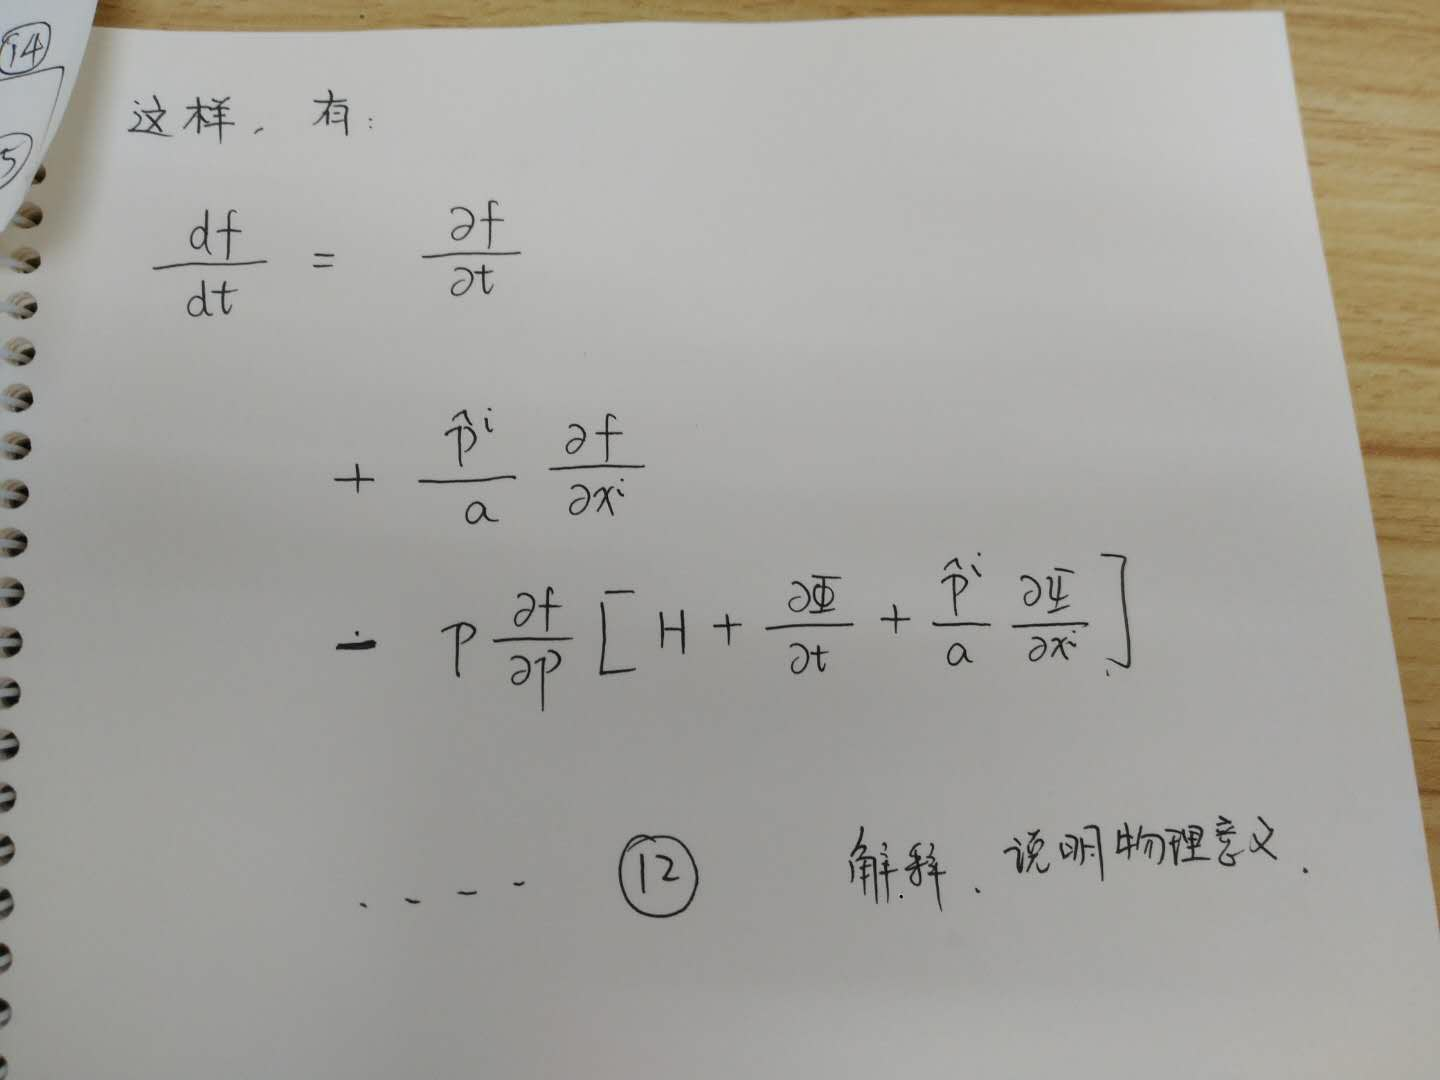 ⑭
5
这样, 有:
df/dt = ∂f/∂t
+ p̂ⁱ/a ∂f/∂xⁱ
- p ∂f/∂p [H + ∂Φ/∂t + p̂ⁱ/a ∂Ψ/∂xⁱ]
.... ⑫ 解释、说明物理意义.